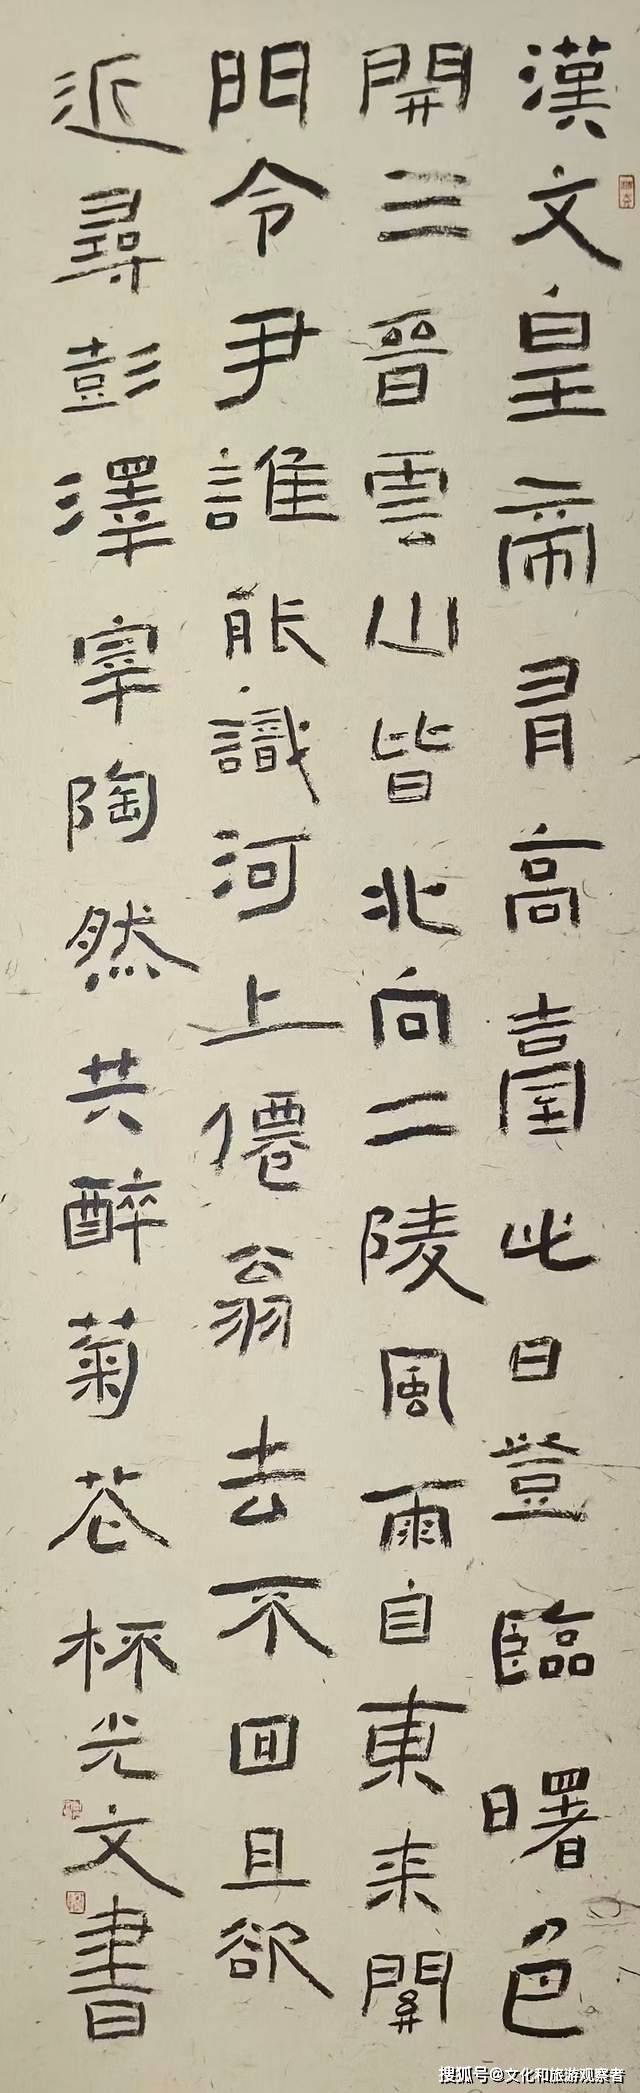 漢文皇帝有高臺此日登臨曙色
開三晉雲山皆北向二陵風雨自東来關
門令尹誰能識河上僊翁去不回且欲
近尋彭澤宰陶然共醉菊花杯光文書
搜狐号@文化和旅游观察者